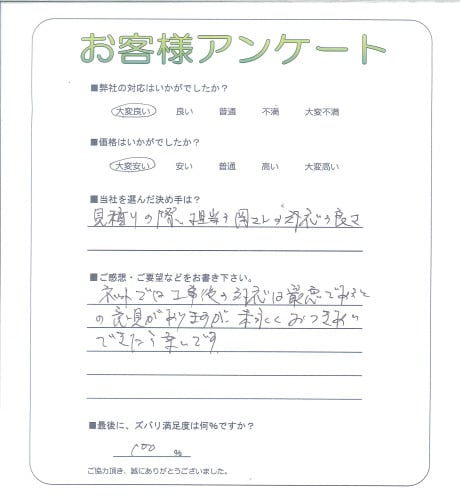 お客様アンケート
■弊社の対応はいかがでしたか?
大変良い 良い 普通 不満 大変不満
■価格はいかがでしたか?
大変安い 安い 普通 高い 大変高い
■当社を選んだ決め手は?
見積りの際、担当の 対応の良さ
■ご感想・ご要望などをお書き下さい。
ネットでは工事後の対応は最悪であると
の意見がありますが、末永くおつきあい
できたら幸いです
■最後に、ズバリ満足度は何%ですか?
100 %
ご協力頂き、誠にありがとうございました。